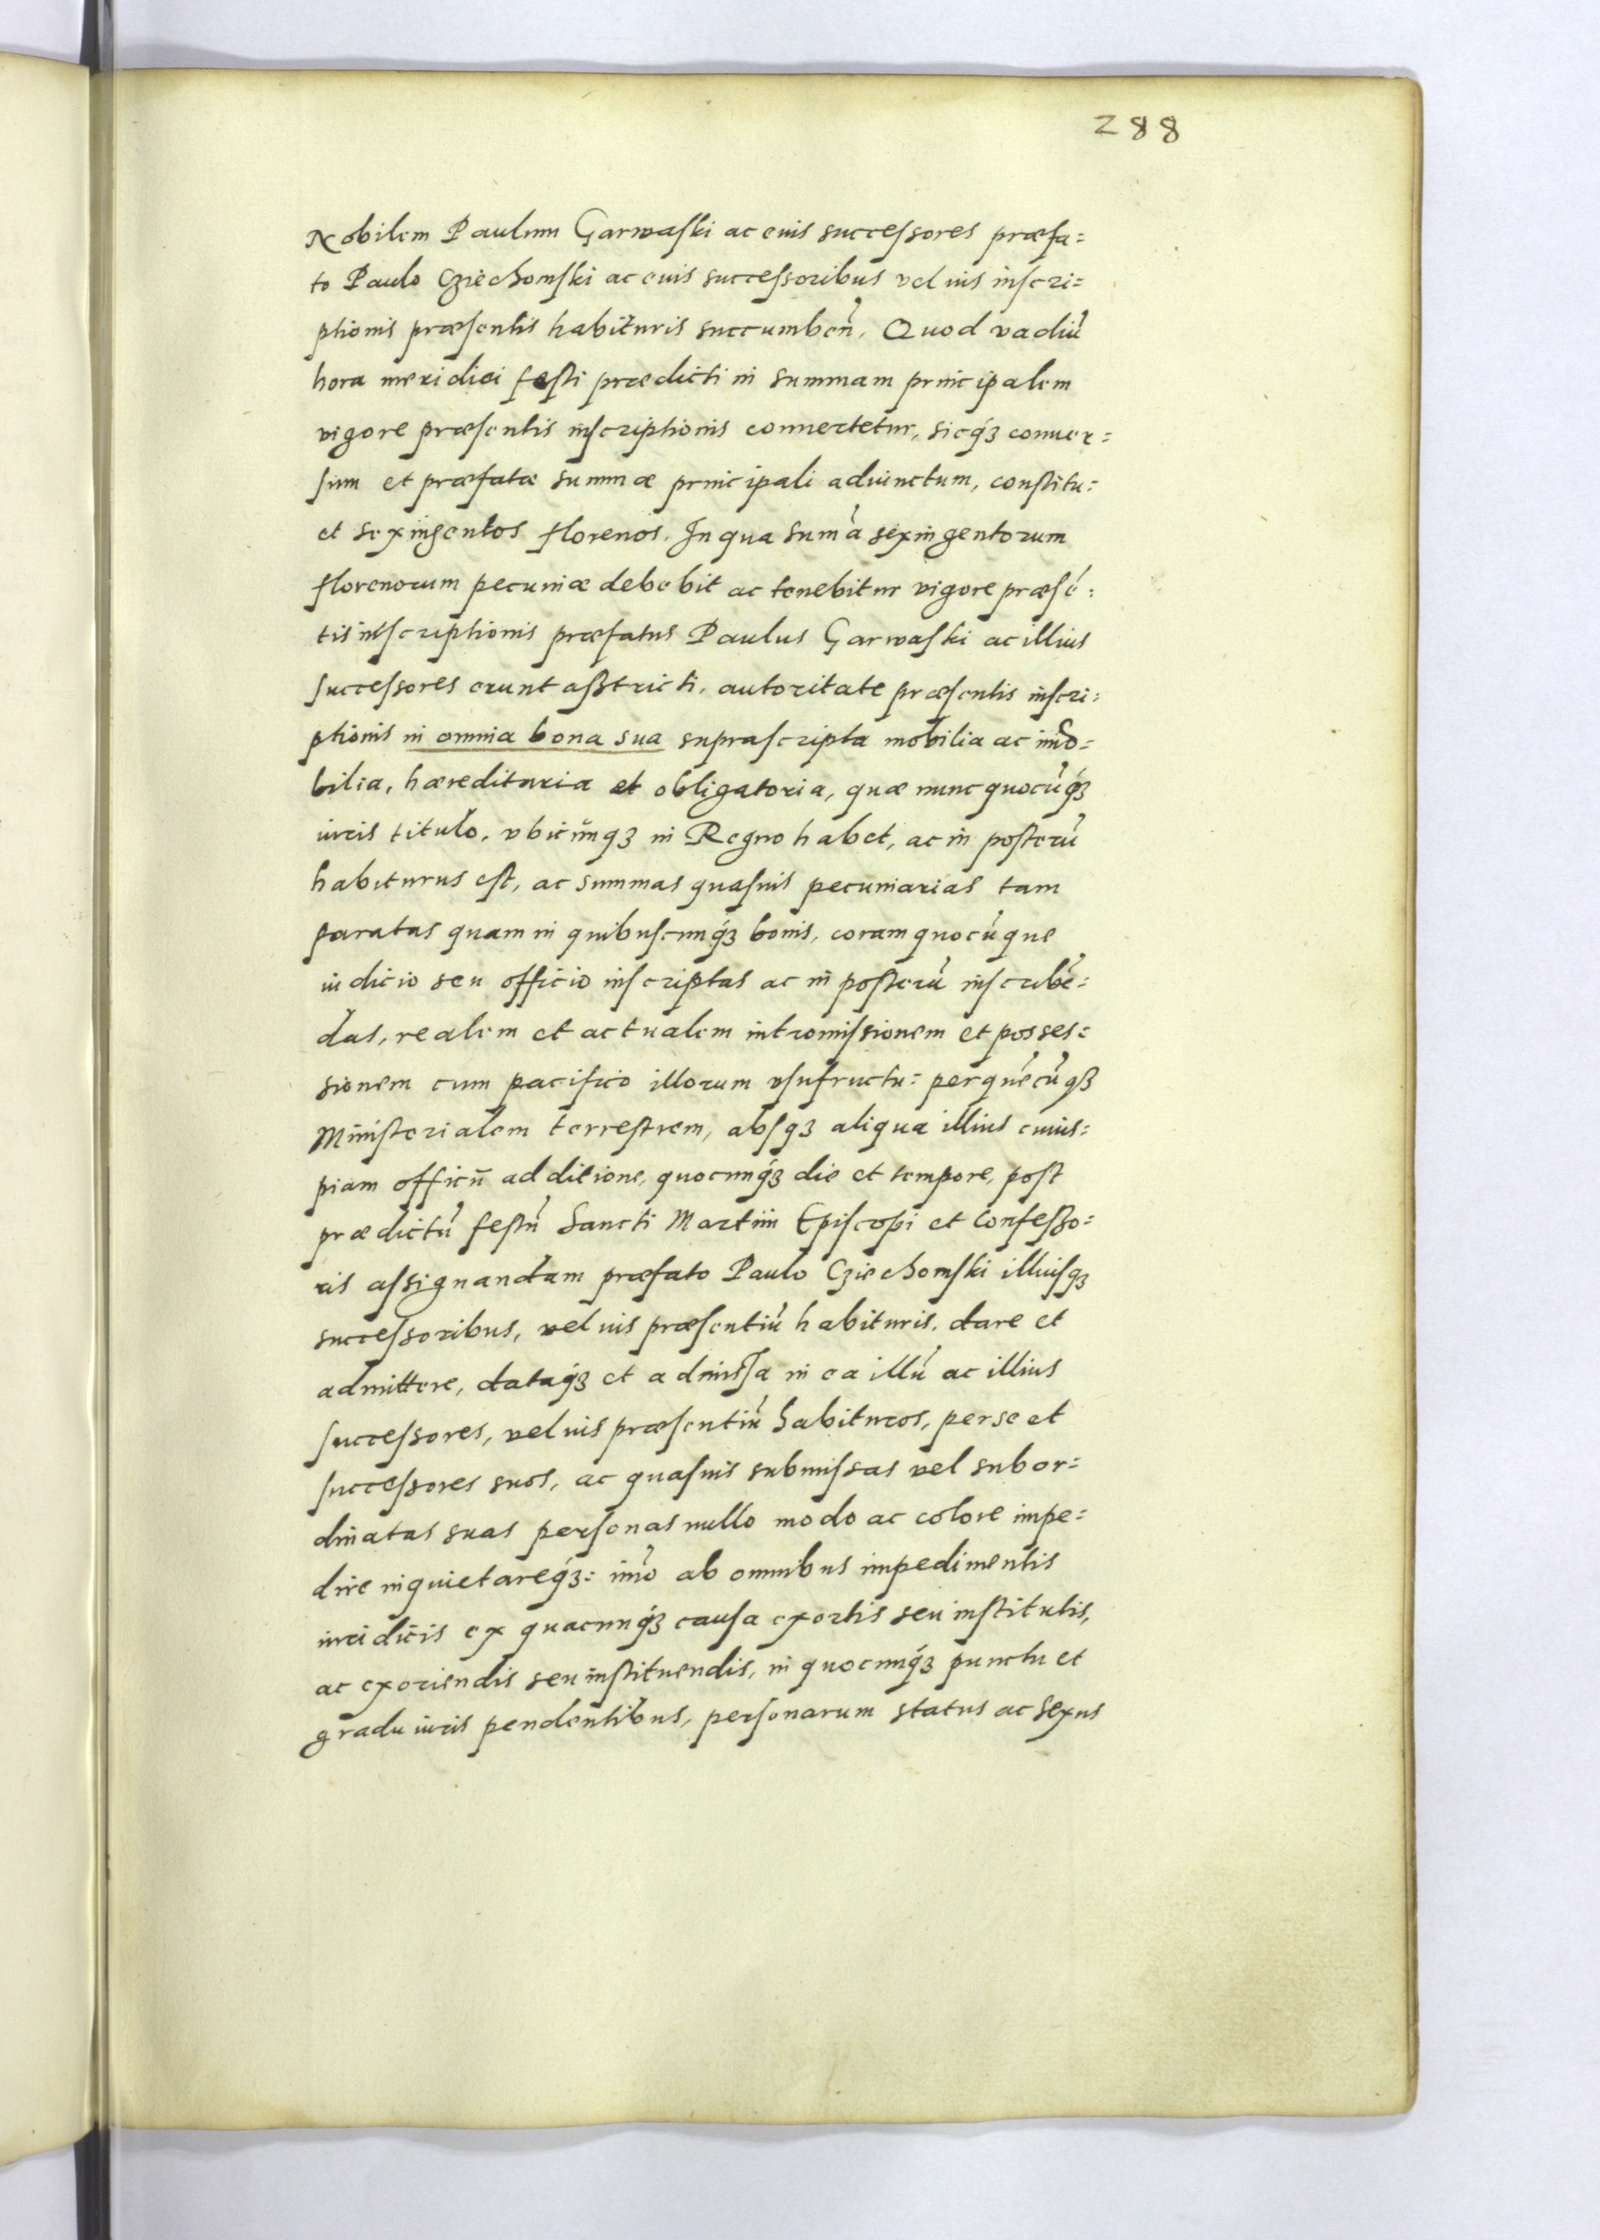 288
Nobilem Paulum Garwaski ac euis successores præfa=
to Paulo Cziechomski ac euis successoribus vel ius inscri=
ptionis præsentis habituris succumben̄. Quod vadiū
hora meridiei festi prædicti in summam principalem
vigore præsentis inscriptionis conuertetur, sicq́ꝫ conuer=
sum et præfatæ summæ principali adiunctum, constitu=
et sexingentos florenos. In qua sum̄a sexingentorum
florenorum pecuniæ debebit ac tenebitur vigore præsē=
tis inscriptionis præfatus Paulus Garwaski ac illius
successores erunt astricti, autoritate præsentis inscri=
ptionis in omnia bona sua suprascripta mobilia ac im̄o=
bilia, hæreditaria et obligatoria, quæ nunc quocūq́ꝫ
iuris titulo, vbicūnqꝫ in Regno habet, ac in posterū
habiturus est, ac summas quasuis pecuniarias tam
paratas quam in quibuscunq́ꝫ bonis, coram quocūque
iudicio seu officio inscriptas ac in posterū inscribē=
das, realem et actualem intromissionem et posses=
sionem cum pacifico illorum vsufructu: per quēcūqꝫ
Ministerialem terrestrem, absqꝫ aliqua illius cuius=
piam officii additione, quocunq́ꝫ die et tempore, post
prædictū festū Sancti Martini Episcopi et Confesso=
ris assignandam præfato Paulo Cziechomski illiusqꝫ
successoribus, vel ius præsentiū habituris, dare et
admittere, dataq́ꝫ et admissa in ea illū ac illius
successores, vel ius præsentiū habituros, per se et
successores suos, ac quasuis submissas vel subor=
dinatas suas personas nullo modo ac colore impe=
dire inquietareq́ꝫ: im̄o ab omnibus impedimentis
iuridicis ex quacunq́ꝫ causa exortis seu institutis,
ac exoriendis seu instituendis, in quocunq́ꝫ punctu et
gradu iuris pendentibus, personarum status ac sexus